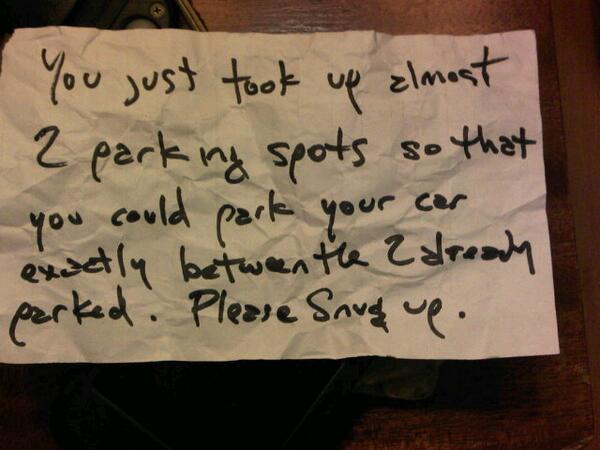 You just took up almost
2 parking spots so that
you could park your car
exactly between the 2 already
parked. Please Snug up.